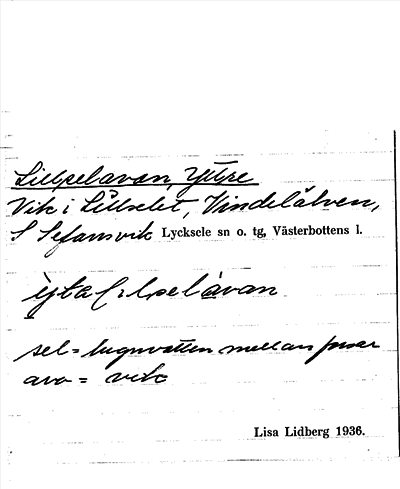 Lillselavan, Yttre
Vik i Lillselet, Vindelälven,
S Stefansvik Lycksele sn o. tg, Västerbottens l.
selavan
sel = lugnvatten mellan forsar
ava = vik
Lisa Lidberg 1936.